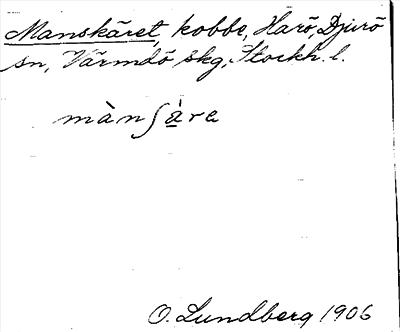 Manskäret, kobbe, Harö, Djurö
sn, Värmdö skg, Stockh. l.
mànʃà̱re
O. Lundberg 1906